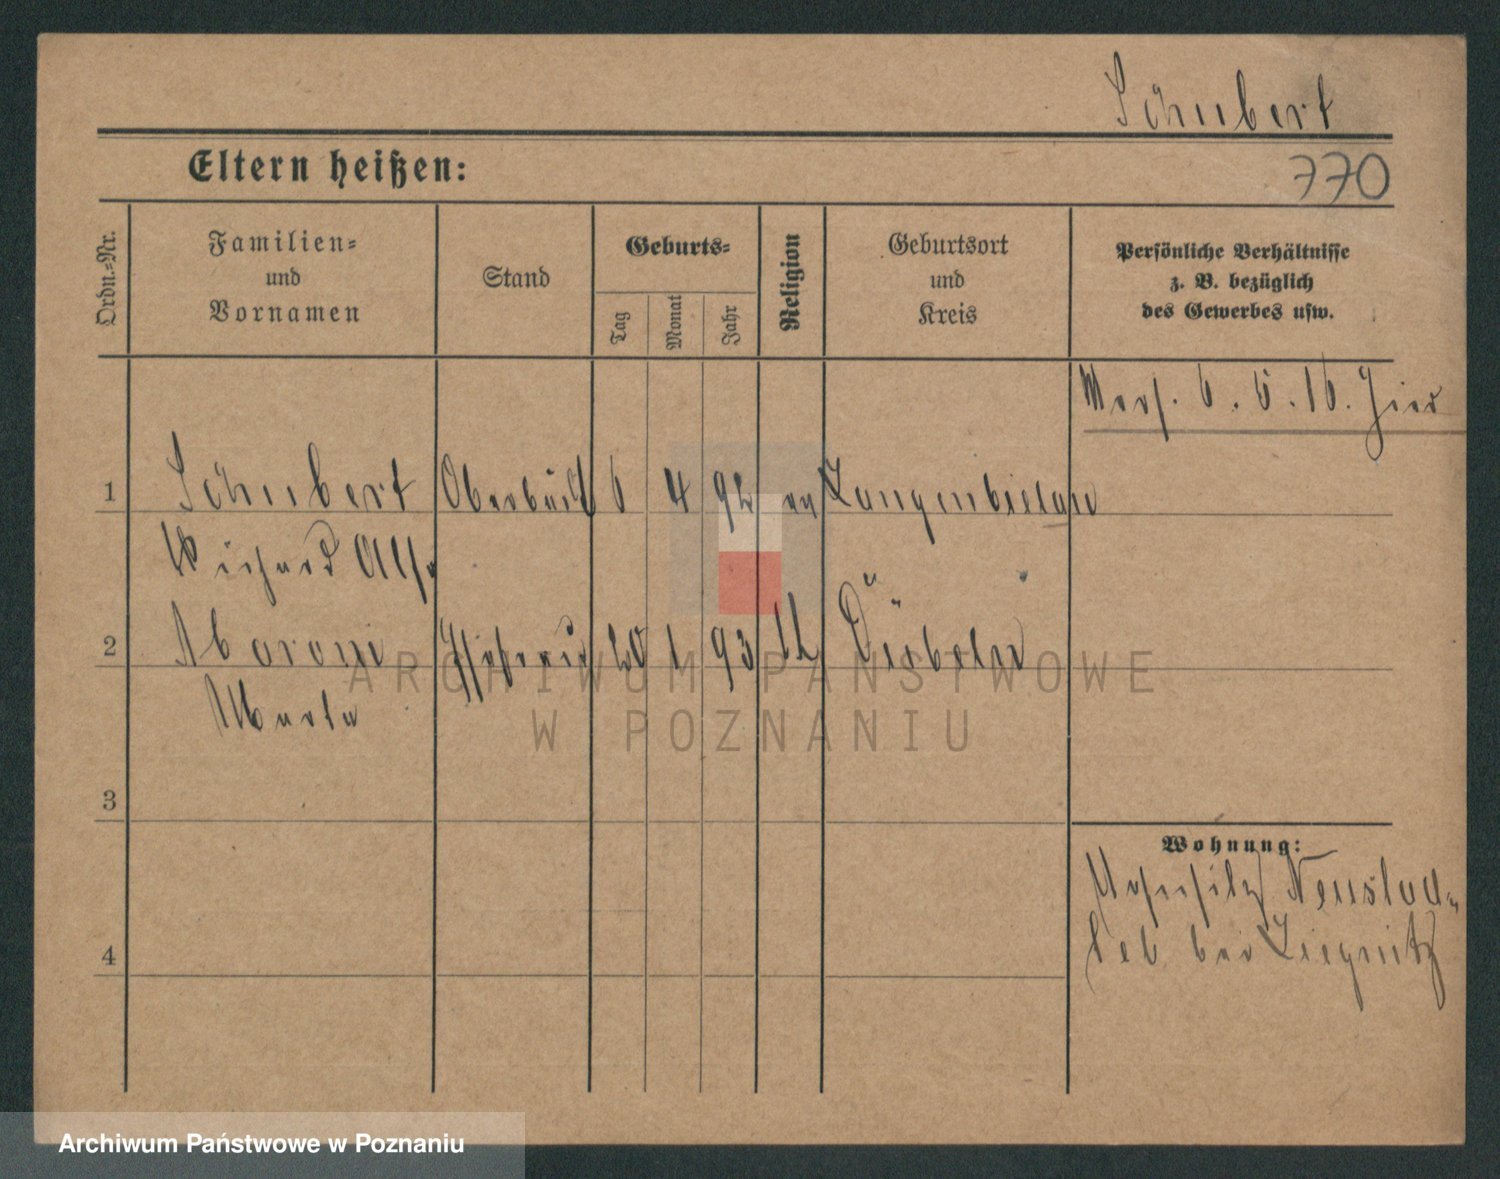 Schubert
Eltern heißen:
770
Ordn.=Nr.
Familien=
und
Vornamen
Stand
Geburts=
Tag
Monat
Jahr
Religion
Geburtsort
und
Kreis
Persönliche Verhältnisse
z. B. bezüglich
des Gewerbes usw.
6. 5. 16.
1 Schubert 6 4 92 ev Langenbielau
Richard Alf.
2 20 1 93
Marta
3
4
Wohnung:
Neustad=
bei Liegnitz
ARCHIWUM PAŃSTWOWE
W POZNANIU
Archiwum Państwowe w Poznaniu